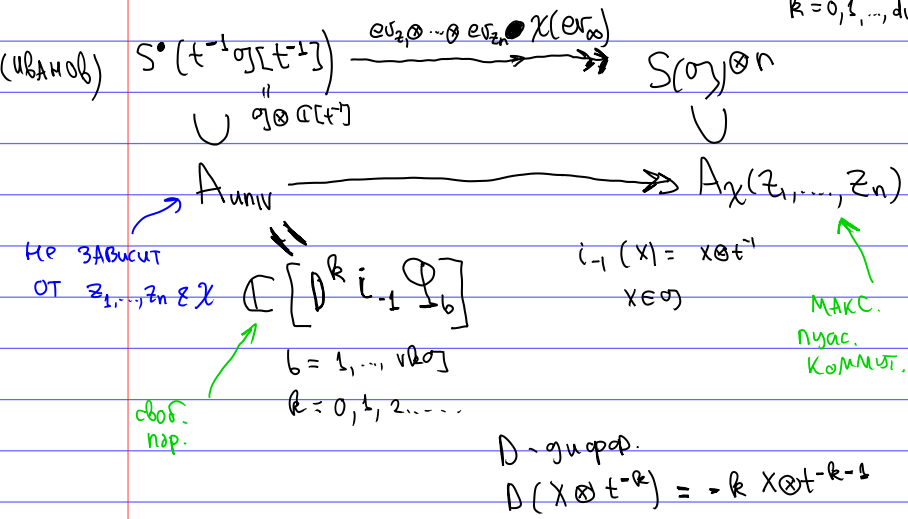 k = 0, 1, ...,
(ИВАНОВ) S•(t⁻¹𝔤[t⁻¹]) ev_{z₁}⊗...⊗ev_{zₙ}•χ(ev_∞) S(𝔤)^{⊗n}
=
𝔤⊗ℂ[t⁻¹]
∪ ∪
A_{univ} A_χ(z₁, ..., zₙ)
НЕ ЗАВИСИТ
ОТ z₁, ..., zₙ и χ
ℂ[D^k i₋₁ Φ_b]
i₋₁(x) = x⊗t⁻¹
x∈𝔤
МАКС.
пуас.
коммут.
b = 1, ..., rk𝔤
k = 0, 1, 2.....
своб.
пор.
D - диффер.
D(x⊗t^{-k}) = -k x⊗t^{-k-1}